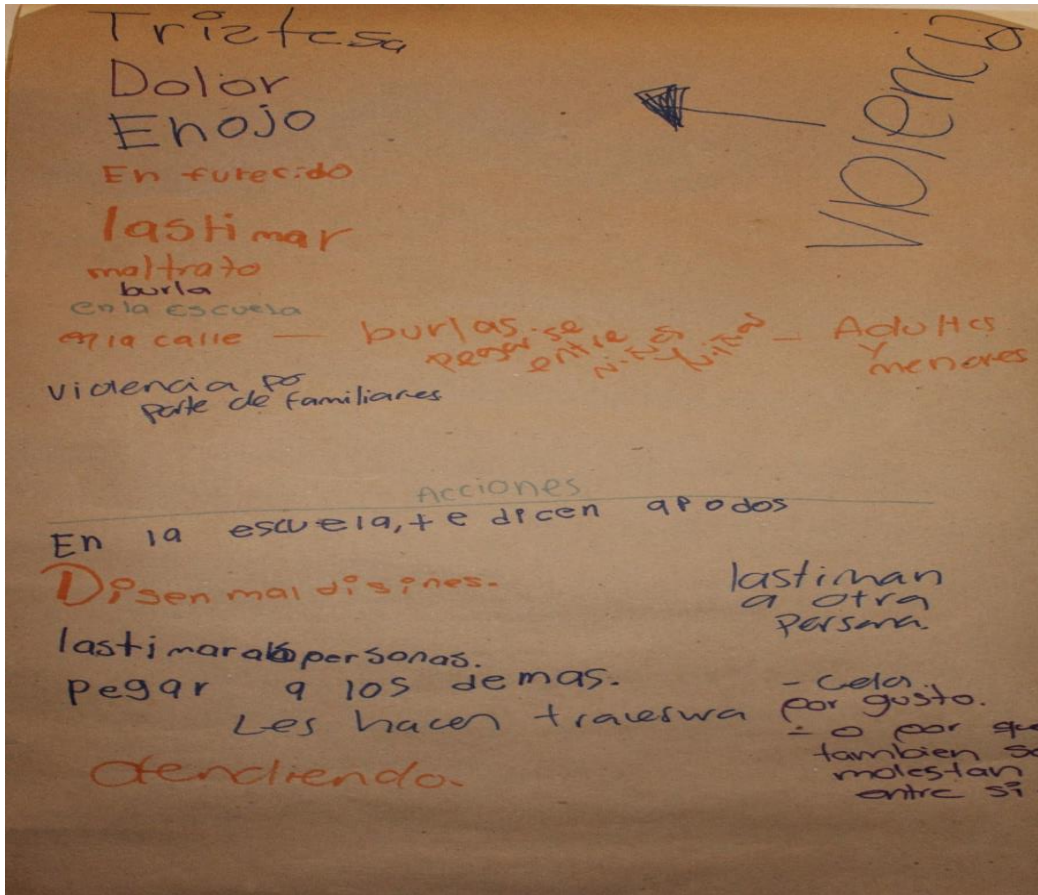 Tristesa
Dolor
Enojo
Violencia
En furecido
lastimar
maltrato
burla
en la escuela
en la calle — burlas. — Adultos
pegarse
entre
y
menores
violencia po
parte de familiares
Acciones
En la escuela, te dicen apodos
Disen maldisines.
lastiman
a otra
persona.
lastimar a personas.
pegar a los demas.
Les hacen
- Celo.
por gusto.
- o por que
tambien se
molestan
entre si
ofendiendo.